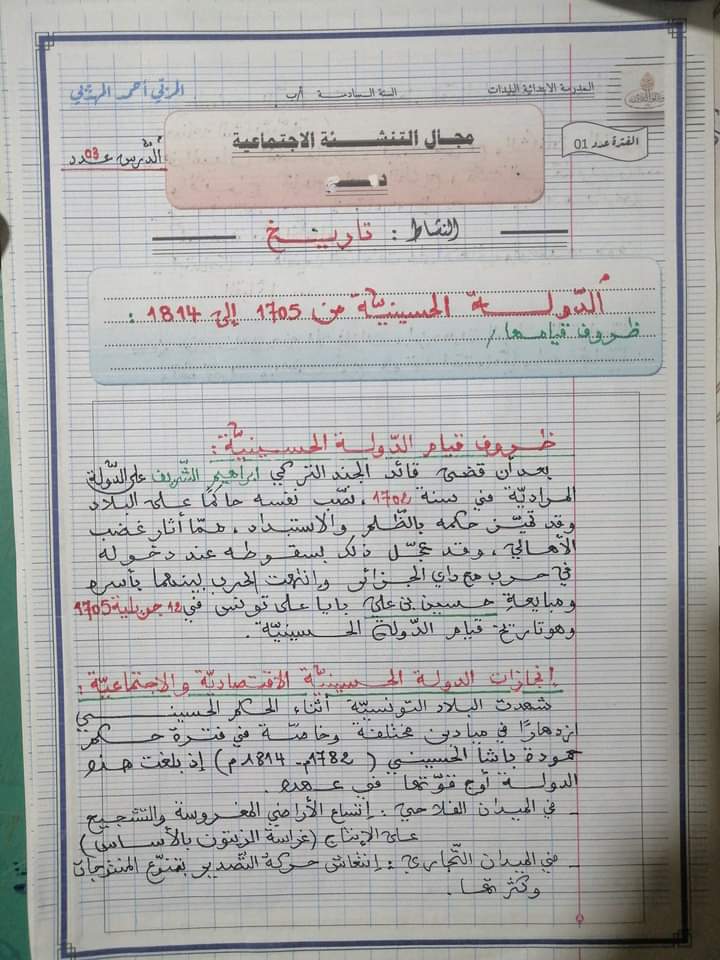 المدرسة الابتدائية البليدات
السنة السادسة أ/ب
المربّي أحمد المهذبي
الفترة عدد 01
مجال التنشئة الاجتماعية
الدّرس عدد 03
النشاط : تاريخ
الدّولة الحسينيّة من 1705 إلى 1814 :
ظروف قيامها /
ظروف قيام الدّولة الحسينيّة :
بعد أن قضى قائد الجند التركي ابراهيم الشّريف على الدّولة
المراديّة في سنة 1702 ، نصّب نفسه حاكمًا على البلاد
وقد تميّز حكمه بالظّلم والاستبداد ، ممّا أثار غضب
الأهالي ، وقد عجّل ذلك بسقوطه عند دخوله
في حرب مع داي الجزائر وانتهت الحرب بينهما بأسره
ومبايعة حسين بن علي بايا على تونس في 12 جويلية 1705
وهو تاريخ قيام الدّولة الحسينيّة .
إنجازات الدولة الحسينيّة الاقتصاديّة والاجتماعيّة :
شهدت البلاد التونسيّة أثناء الحكم الحسيني
ازدهارًا في ميادين مختلفة وخاصّة في فترة حكم
حمودة باشا الحسيني ( 1782م - 1814م ) إذ بلغت هذه
الدولة أوج قوّتها في عهده .
- في الميدان الفلاحي : إتساع الأراضي المغروسة والتشجيع
على الإنتاج ( غراسة الزيتون بالأساس )
- في الميدان التّجاري : إنتعاش حركة التّصدير بتنوّع المنتوجات
وكثرتها .